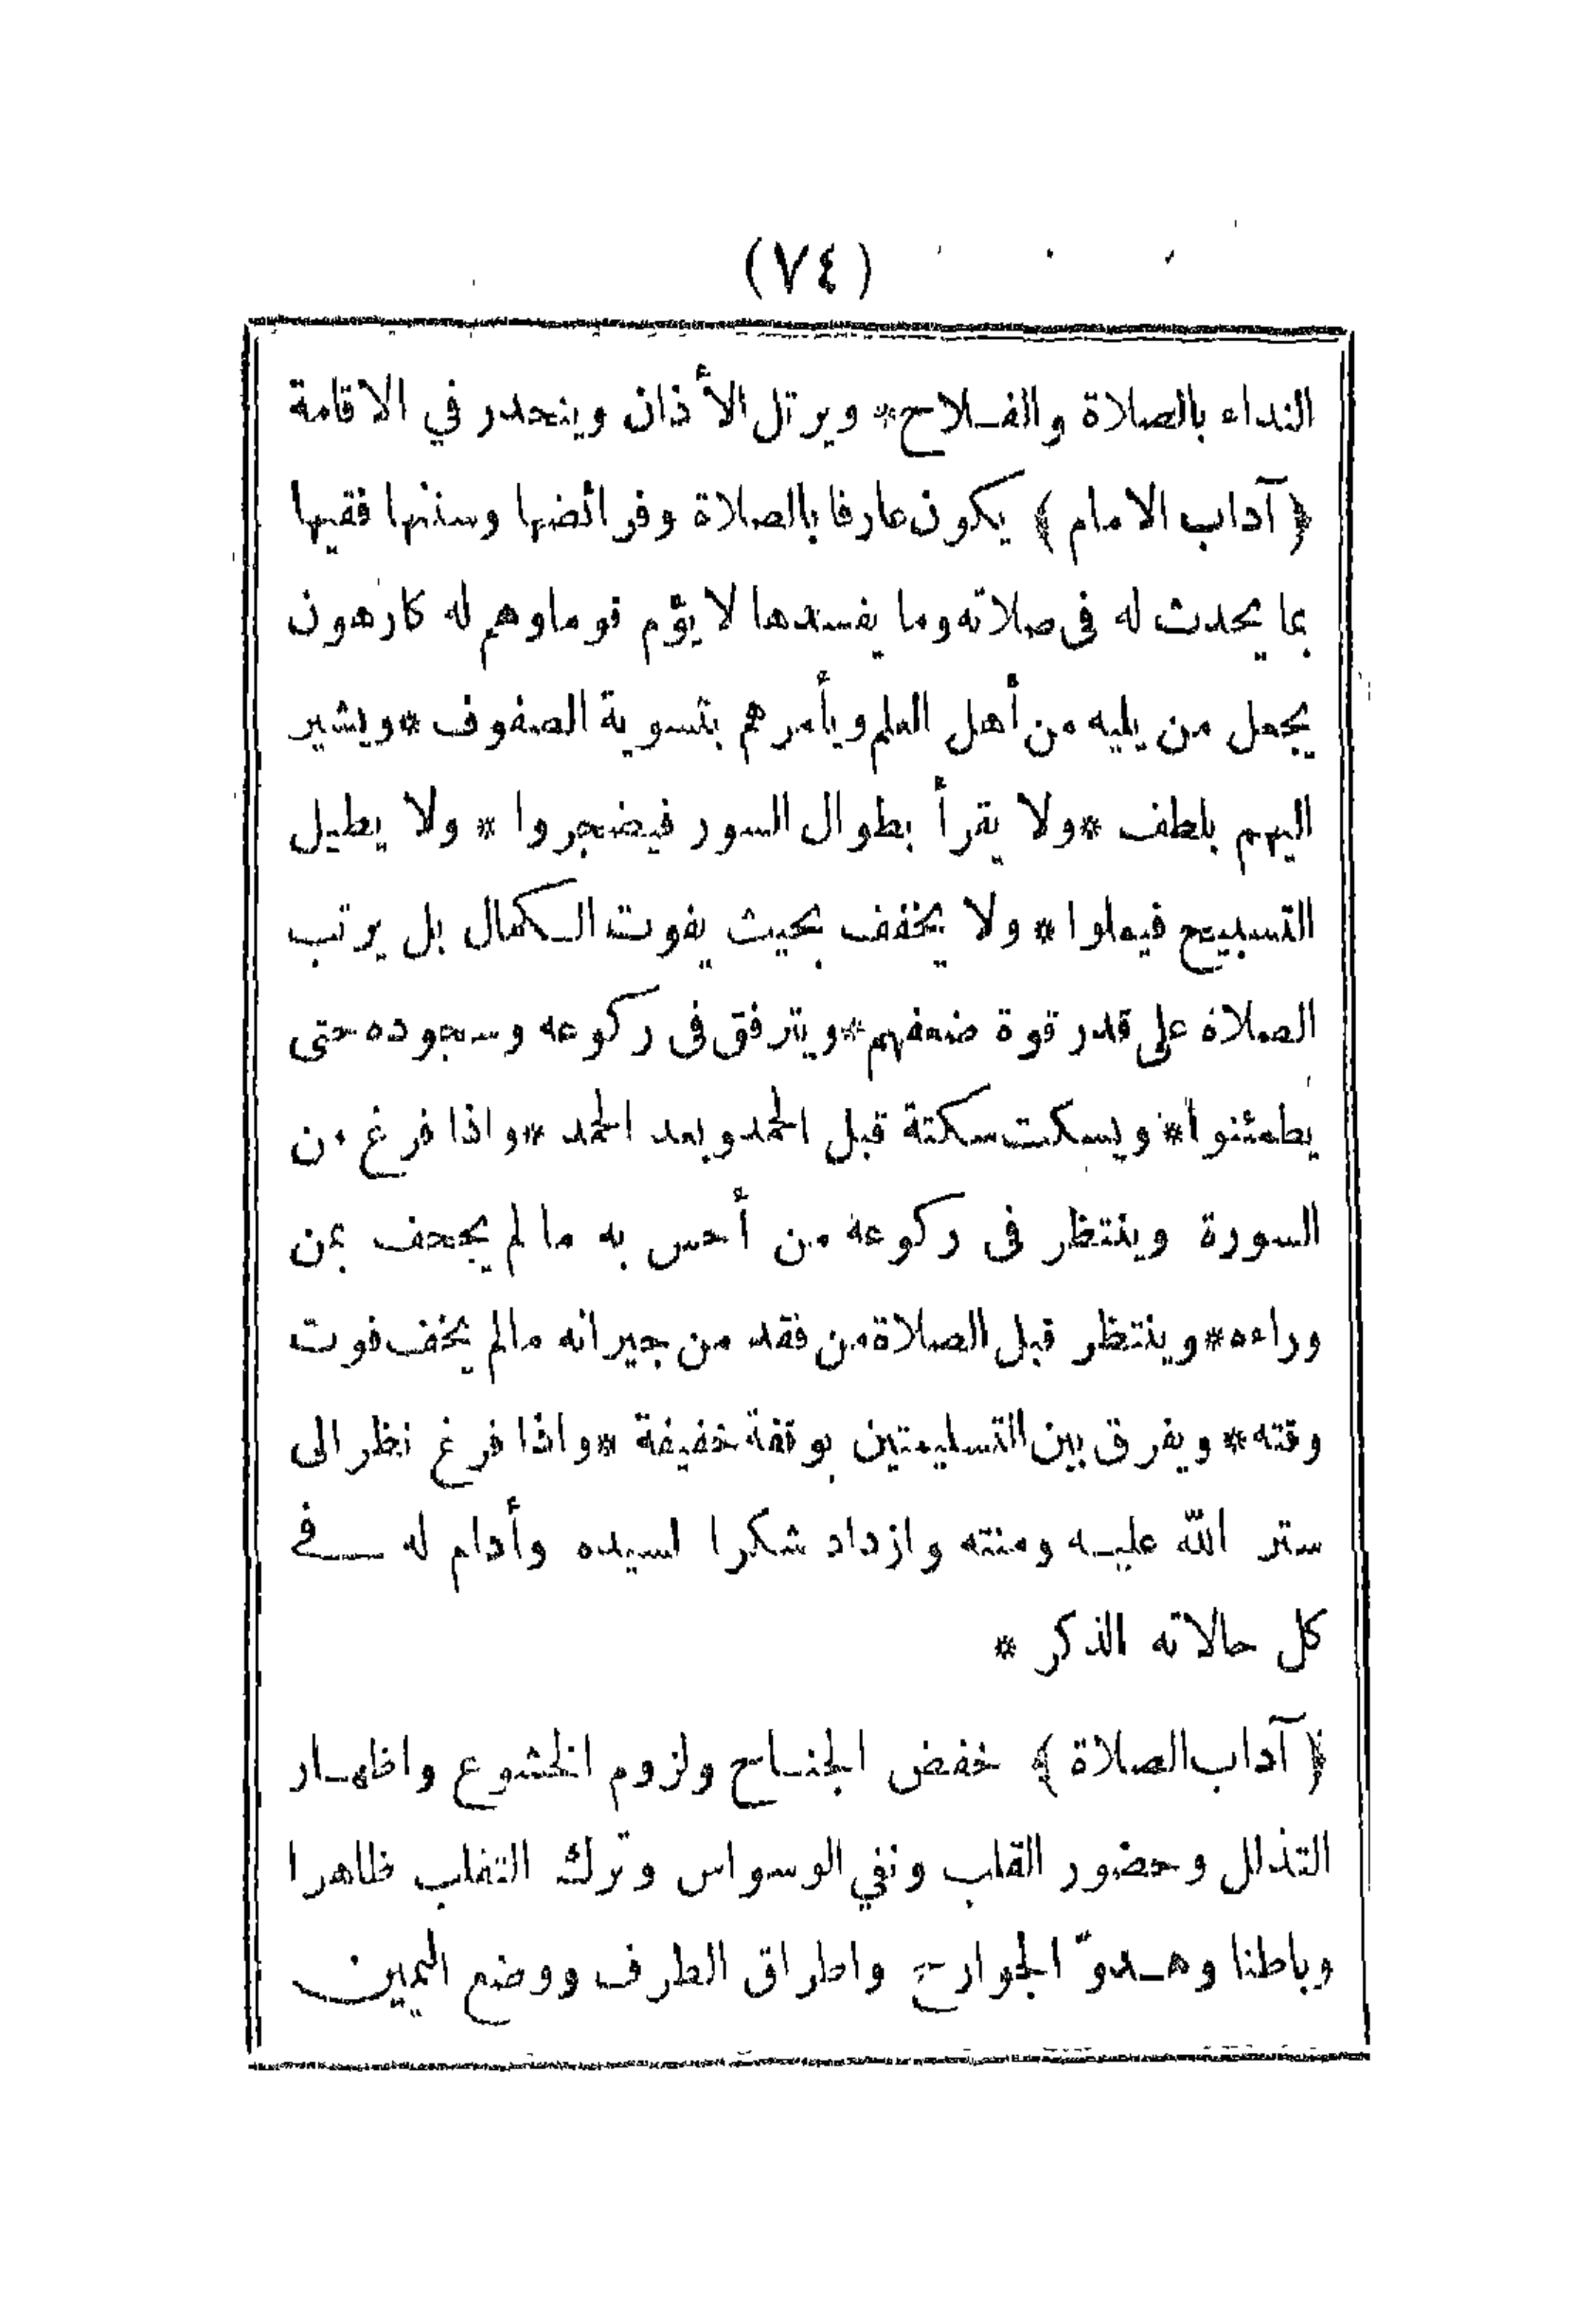 (٧٤)
النداء بالصلاة والفـلاح* ويرتل الأذان وينحدر في الاقامة
﴿آداب الامام﴾ يكون عارفا بالصلاة وفرائضها وسننها فقيها
بما يحدث له فى صلاته وما يفسدها لا يؤم قوما وهم له كارهون
يجعل من يليه من أهل العلم ويأمرهم بتسوية الصفوف *ويشير
اليهم بلطف *ولا يقرأ بطوال السور فيضجروا * ولا يطيل
التسبيح فيملوا * ولا يخفف بحيث يفوت الكمال بل يرتب
الصلاة على قدر قوة ضعفهم*ويترفق فى ركوعه وسجوده حتى
يطمئنوا* ويسكت سكتة قبل الحمد وبعد الحمد *واذا فرغ من
السورة وينتظر فى ركوعه من أحس به ما لم يجحف بمن
وراءه*وينتظر قبل الصلاة من فقد من جيرانه مالم يخف فوت
وقته* ويفرق بين التسليمتين بوقفة خفيفة *واذا فرغ نظر الى
ستر الله عليـه ومنته وازداد شكرا لسيده وأدام له فى
كل حالاته الذكر *
﴿آداب الصلاة﴾ خفض الجنـاح ولزوم الخشوع واظهـار
التذلل وحضور القلب ونفي الوسواس وترك التقلب ظاهرا
وباطنا وهـدوّ الجوارح واطراق الطرف ووضع اليمين